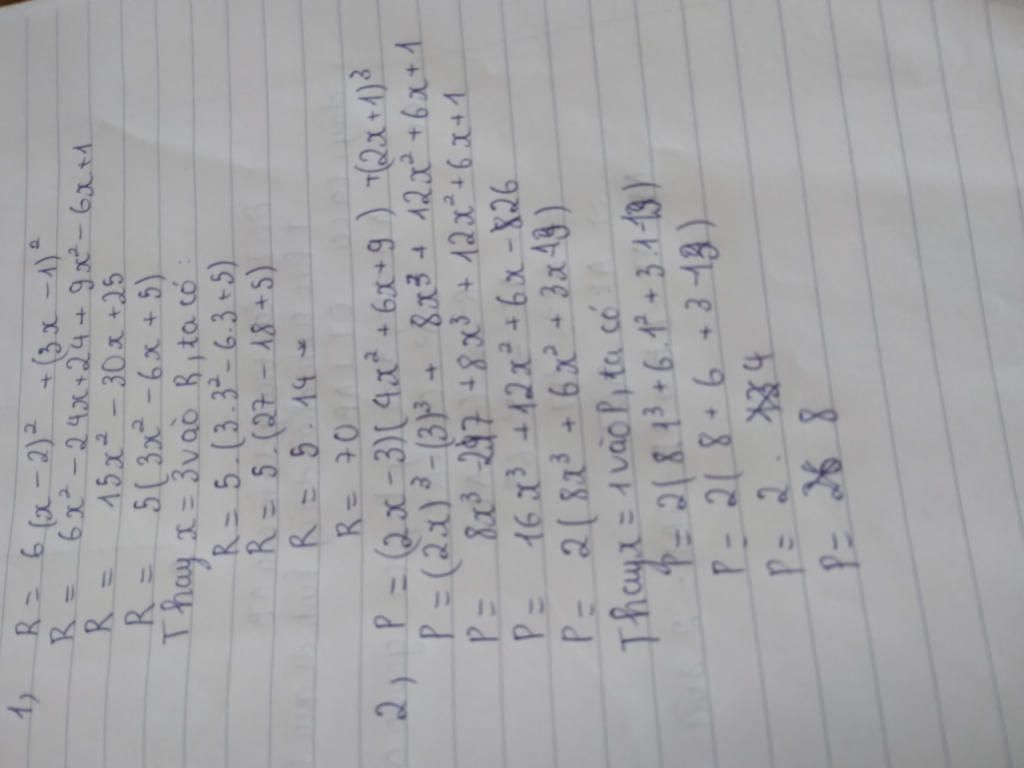 1) R = 6(x - 2)² + (3x - 1)²
R = 6x² - 24x + 24 + 9x² - 6x + 1
R = 15x² - 30x + 25
R = 5(3x² - 6x + 5)
Thay x = 3 vào R, ta có:
R = 5.(3.3² - 6.3 + 5)
R = 5.(27 - 18 + 5)
R = 5.14
R = 70
2) P = (2x - 3)(4x² + 6x + 9) + (2x + 1)³
P = (2x)³ - (3)³ + 8x³ + 12x² + 6x + 1
P = 8x³ - 27 + 8x³ + 12x² + 6x + 1
P = 16x³ + 12x² + 6x - 26
P = 2(8x³ + 6x² + 3x - 13)
Thay x = 1 vào P, ta có
P = 2(8.1³ + 6.1² + 3.1 - 13)
P = 2(8 + 6 + 3 - 13)
P = 2. 4
P = 8